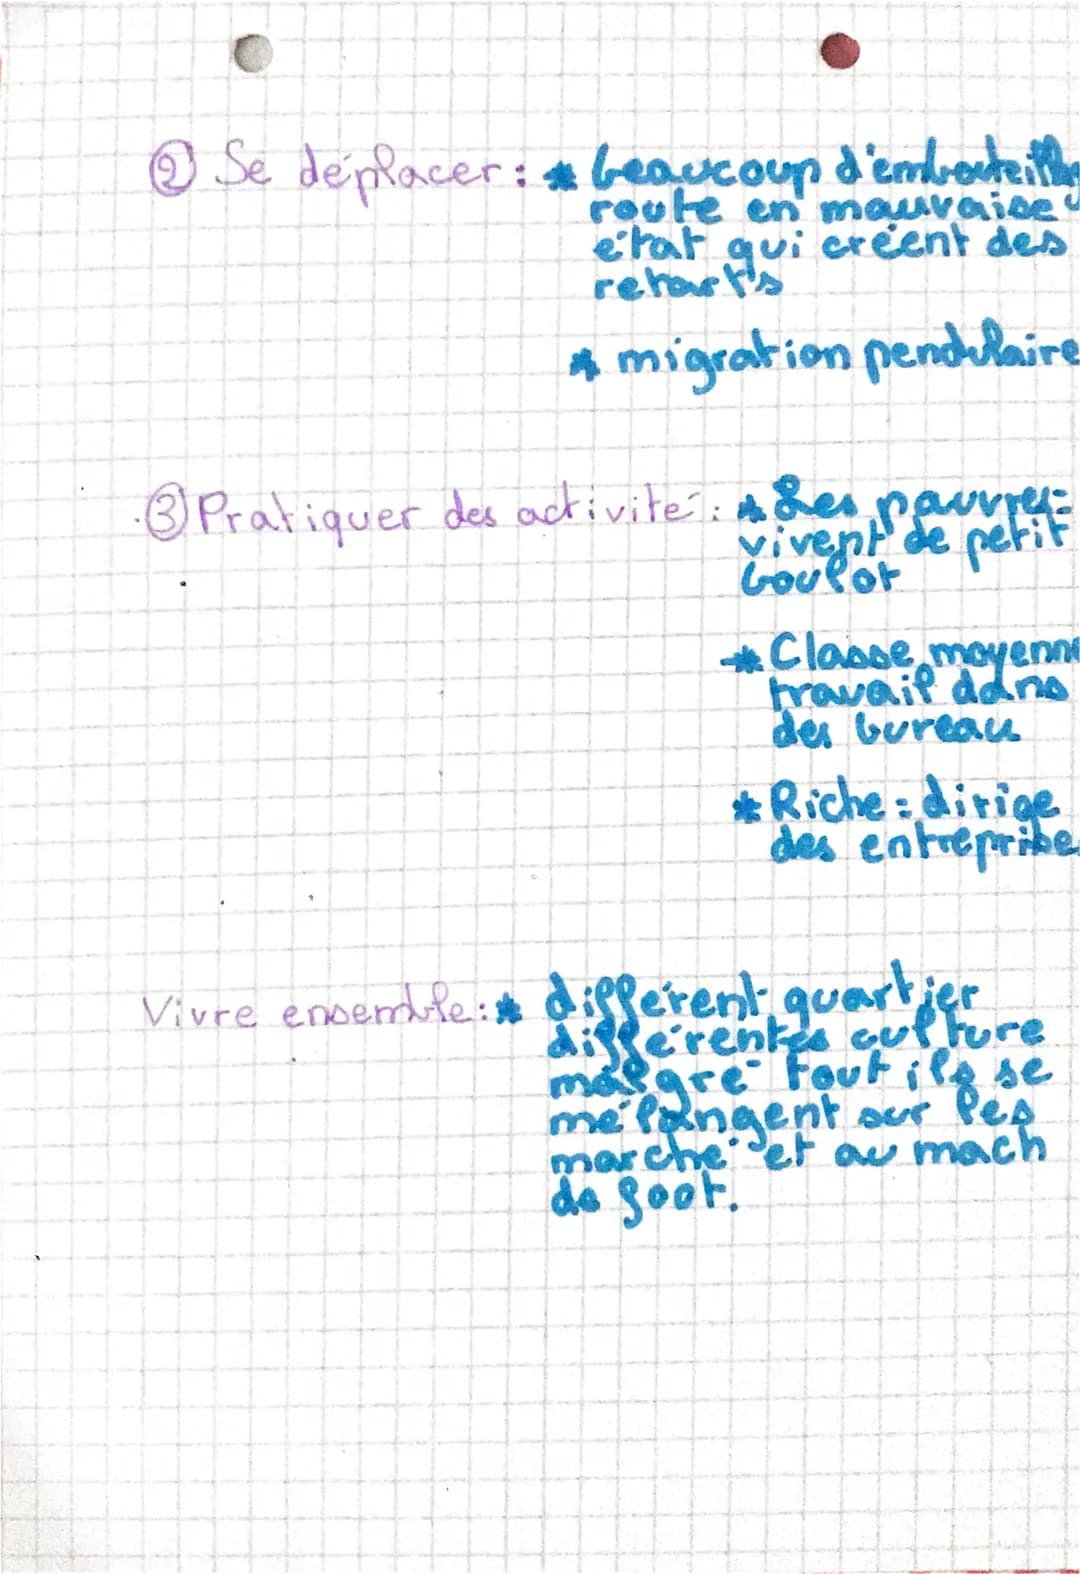 ② Se déplacer : * beaucoup d'embouteillag
route en mauvaise
état qui créent des
retart's
* migration pendulaire
③ Pratiquer des activité : * Les pauvres :
vivent de petit
boulot
* Classe moyenne
travail dans
des bureau
* Riche : dirige
des entreprise
Vivre ensemble : * différent quartier
différentes culture
malgré tout ils se
mélangent sur les
marché et au mach
de foot.